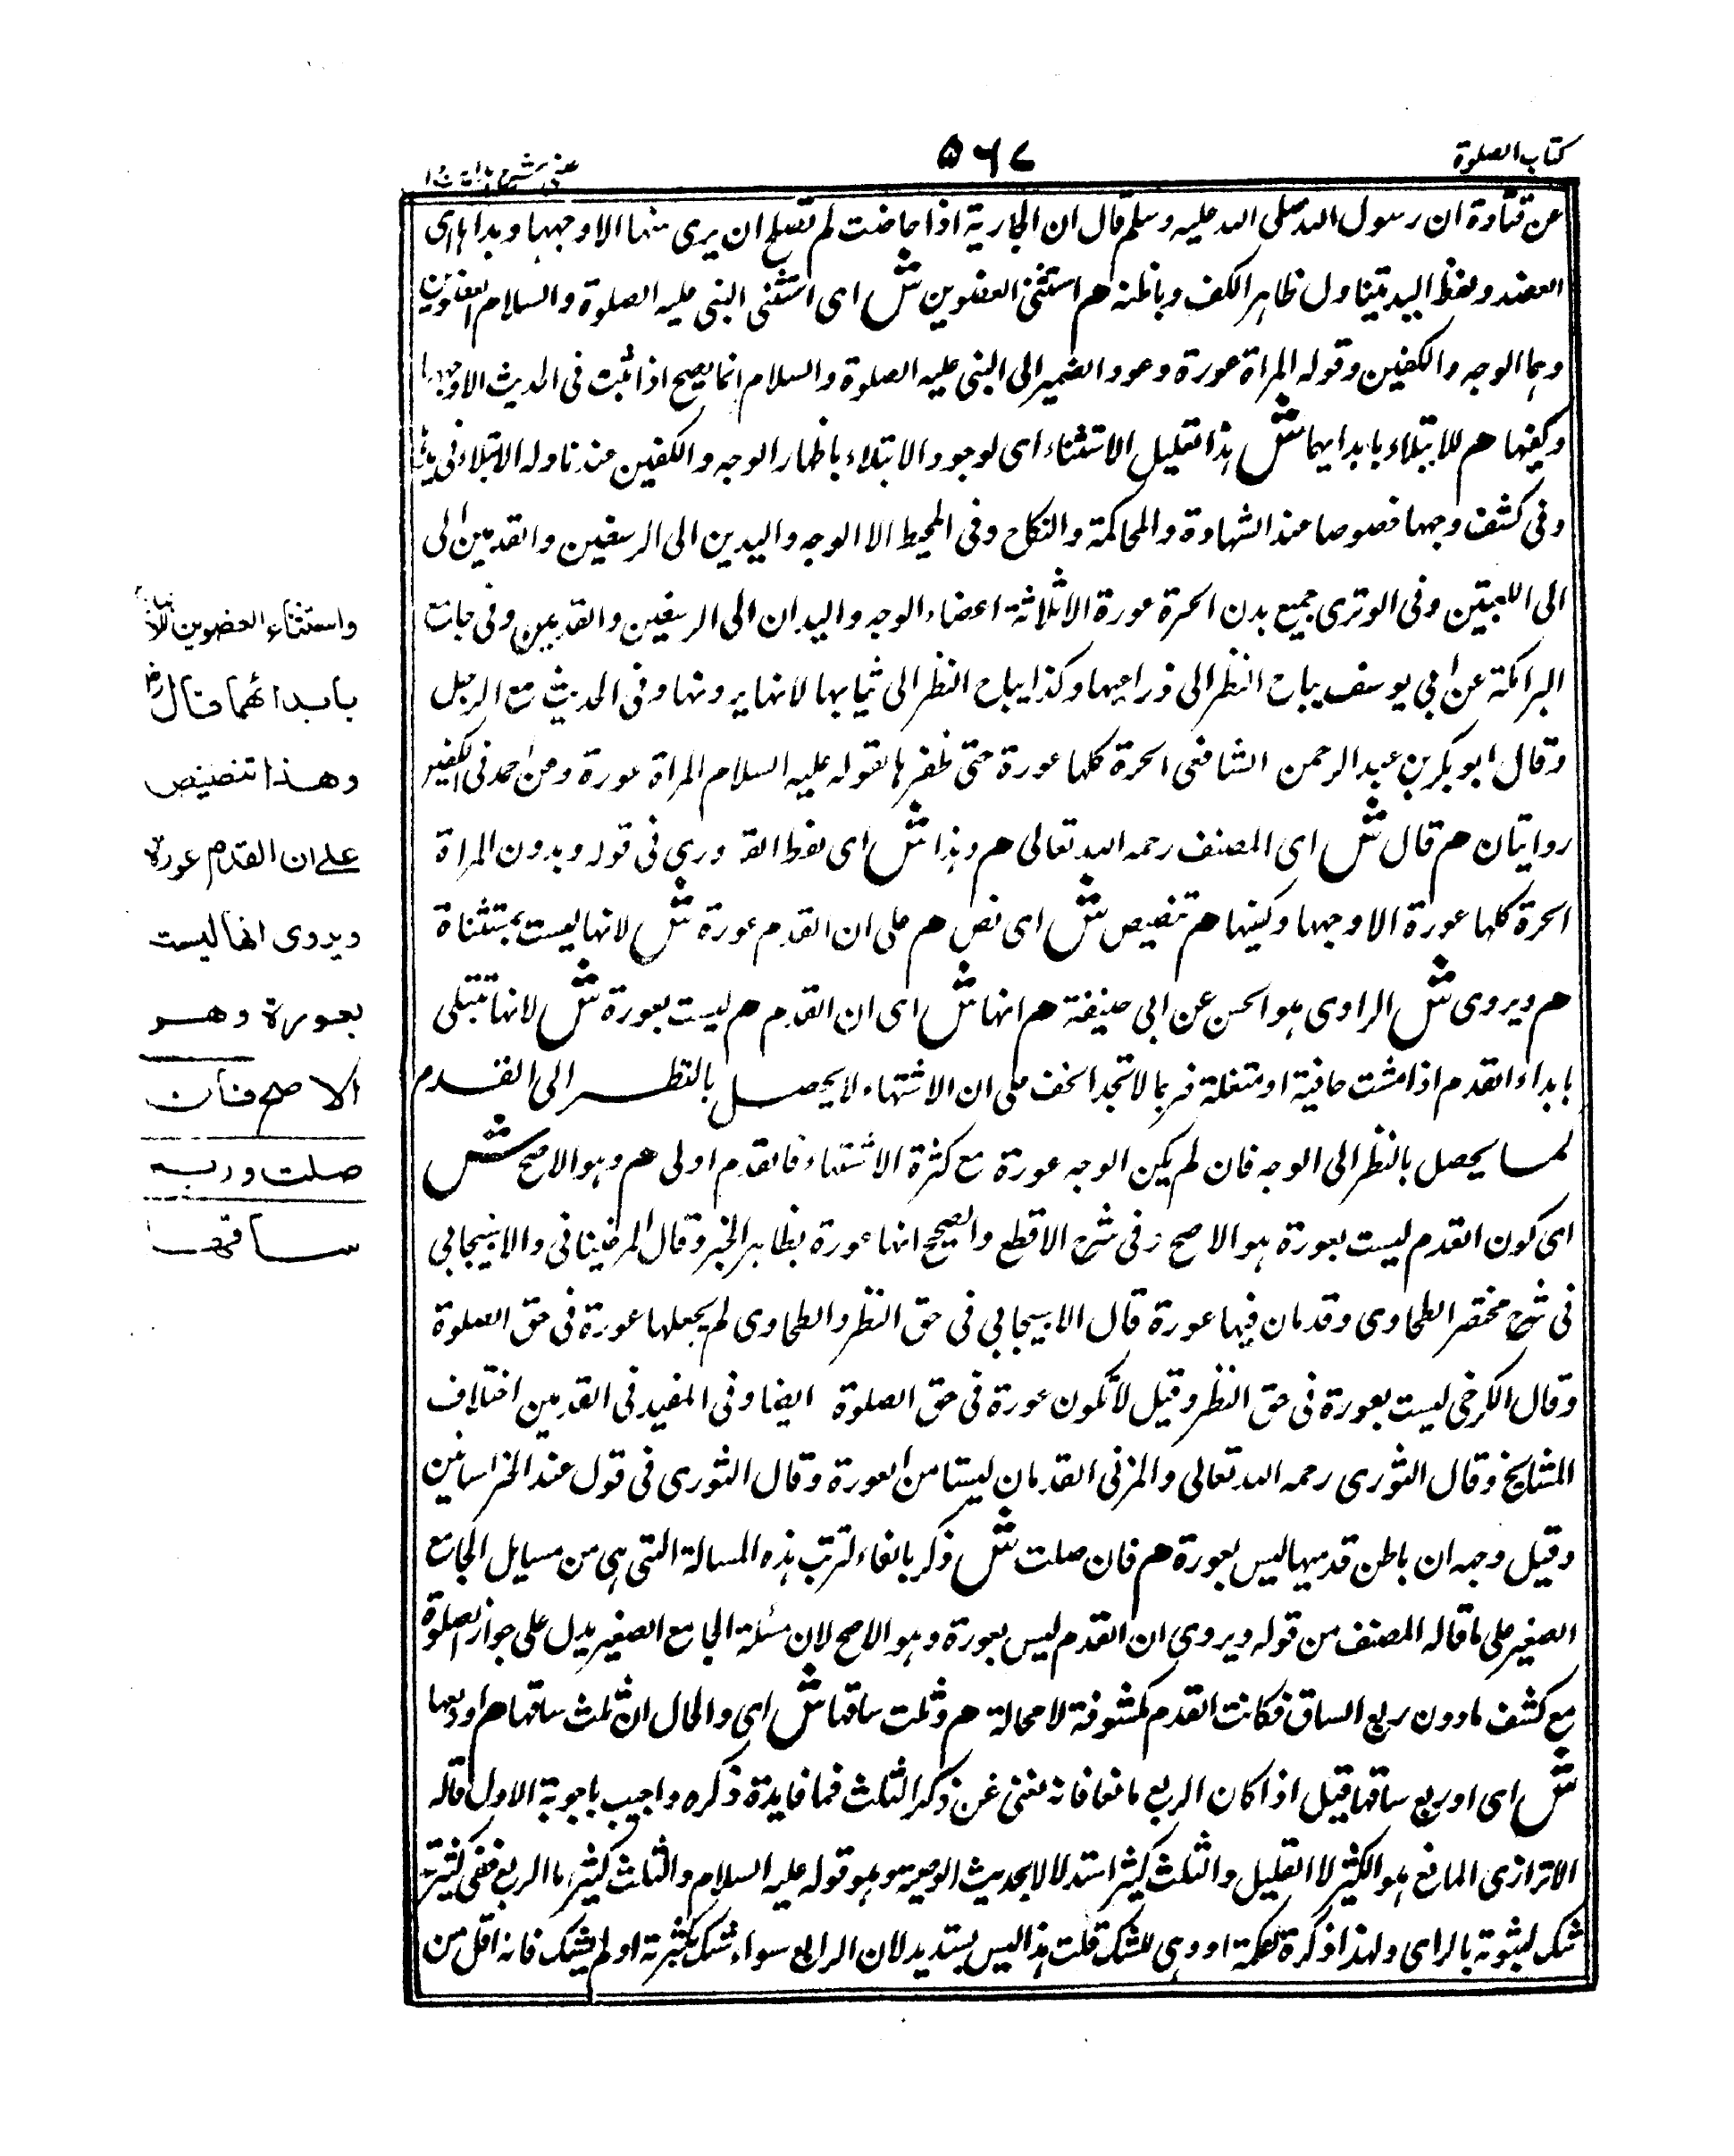 كتاب الصلوة
٥٦٧
عينى شرح هداية ج ١
عن قتادة ان رسول الله صلى الله عليه وسلم قال ان الجارية اذا حاضت لم تصلح ان يرى منها الا وجهها ويداها اى
العضد ولفظ اليد يتناول ظاهر الكف وباطنه هم استثنى العضوين ش اى استثنى النبى عليه الصلوة والسلام العضوين
وهما الوجه والكفين وقوله المراة عورة وعود الضمير الى النبى عليه الصلوة والسلام انما يصح اذا ثبت فى الحديث الا وجهها
وكفيها هم للابتلاء بابدائهما ش هذا تعليل الاستثناء اى لوجود الابتلاء باظهار الوجه والكفين عند تناوله الابتلاء فى
وفى كشف وجهها خصوصا عند الشهادة والمحاكمة والنكاح وفى المحيط الا الوجه واليدين الى الرسغين والقدمين الى
الى الكعبين وفى الوترى جميع بدن الحرة عورة الا ثلاثة اعضاء الوجه واليدان الى الرسغين والقدمين وفى جامع
البرامكة عن ابى يوسف يباح النظر الى ذراعيها وكذا يباح النظر الى ثيابها لانها يرونها وفى الحديث مع الرجل
وقال ابو بكر بن عبد الرحمن الشافعى الحرة كلها عورة حتى ظفرها لقوله عليه السلام المراة عورة ومن احمد فى الكفين
روايتان هم قال ش اى المصنف رحمه الله تعالى هم وهذا ش اى لفظ القدورى فى قوله وبدون المراة
الحرة كلها عورة الا وجهها وكفيها هم تنصيص ش اى نص هم على ان القدم عورة ش لانها ليست بمستثناة
هم ويروى ش الراوى هو الحسن عن ابى حنيفة هم انها ش اى ان القدم هم ليست بعورة ش لانها تبتلى
بابداء القدم اذا مشت حافية او متنعلة فربما لا تجد الخف على ان الاشتهاء لا يحصل بالنظر الى القدم
كما يحصل بالنظر الى الوجه فان لم يكن الوجه عورة مع كثرة الاشتهاء فالقدم اولى هم وهو الاصح ش
اى كون القدم ليست بعورة هو الاصح وفى شرح الاقطع والصحيح انها عورة بظاهر الخبر وقال المرغينانى والاسبيجابى
فى شرح مختصر الطحاوى وقدمان فيها عورة قال الاسبيجابى فى حق النظر والطحاوى لم يجعلها عورة فى حق الصلوة
وقال الكرخى ليست بعورة فى حق النظر وقيل لا تكون عورة فى حق الصلوة ايضا وفى المفيد فى القدمين اختلاف
المشايخ وقال الثورى رحمه الله تعالى والمزنى القدمان ليستا من العورة وقال الثورى فى قول عند الخراسانين
وقيل وجه ان باطن قدميها ليس بعورة هم فان صلت ش ذكر بالفاء لترتب هذه المسالة التى هى من مسايل الجامع
الصغير على ما قاله المصنف من قوله ويروى ان القدم ليس بعورة وهو الاصح لان مسئلة الجامع الصغير يدل على جواز الصلوة
مع كشف مادون ربع الساق فكانت القدم مكشوفة لا محالة هم وثلث ساقها ش اى والحال ان ثلث ساقها هم او ربعها
ش اى او ربع ساقها قيل اذا كان الربع مانعا فانه يغنى عن ذكر الثلث فما فايدة ذكره واجيب باجوبة الاول قاله
الاترازى المانع هو الكثير لا القليل والثلث كثير استدلالا بحديث الوصية وهو قوله عليه السلام والثلث كثير اما الربع ففى كثرته
شك لثبوته بالراى ولهذا ذكره كلمة او وهى للشك قلت هذا ليس بسديد لان الرابع سواء شك بكثرته او لم يشك فانه اقل من
واستثناء العضوين للابتلاء
بابدائهما قال رض
وهذا تنصيص
على ان القدم عورة
ويروى انها ليست
بعورة وهو
الاصح فان
صلت وربع
ساقها